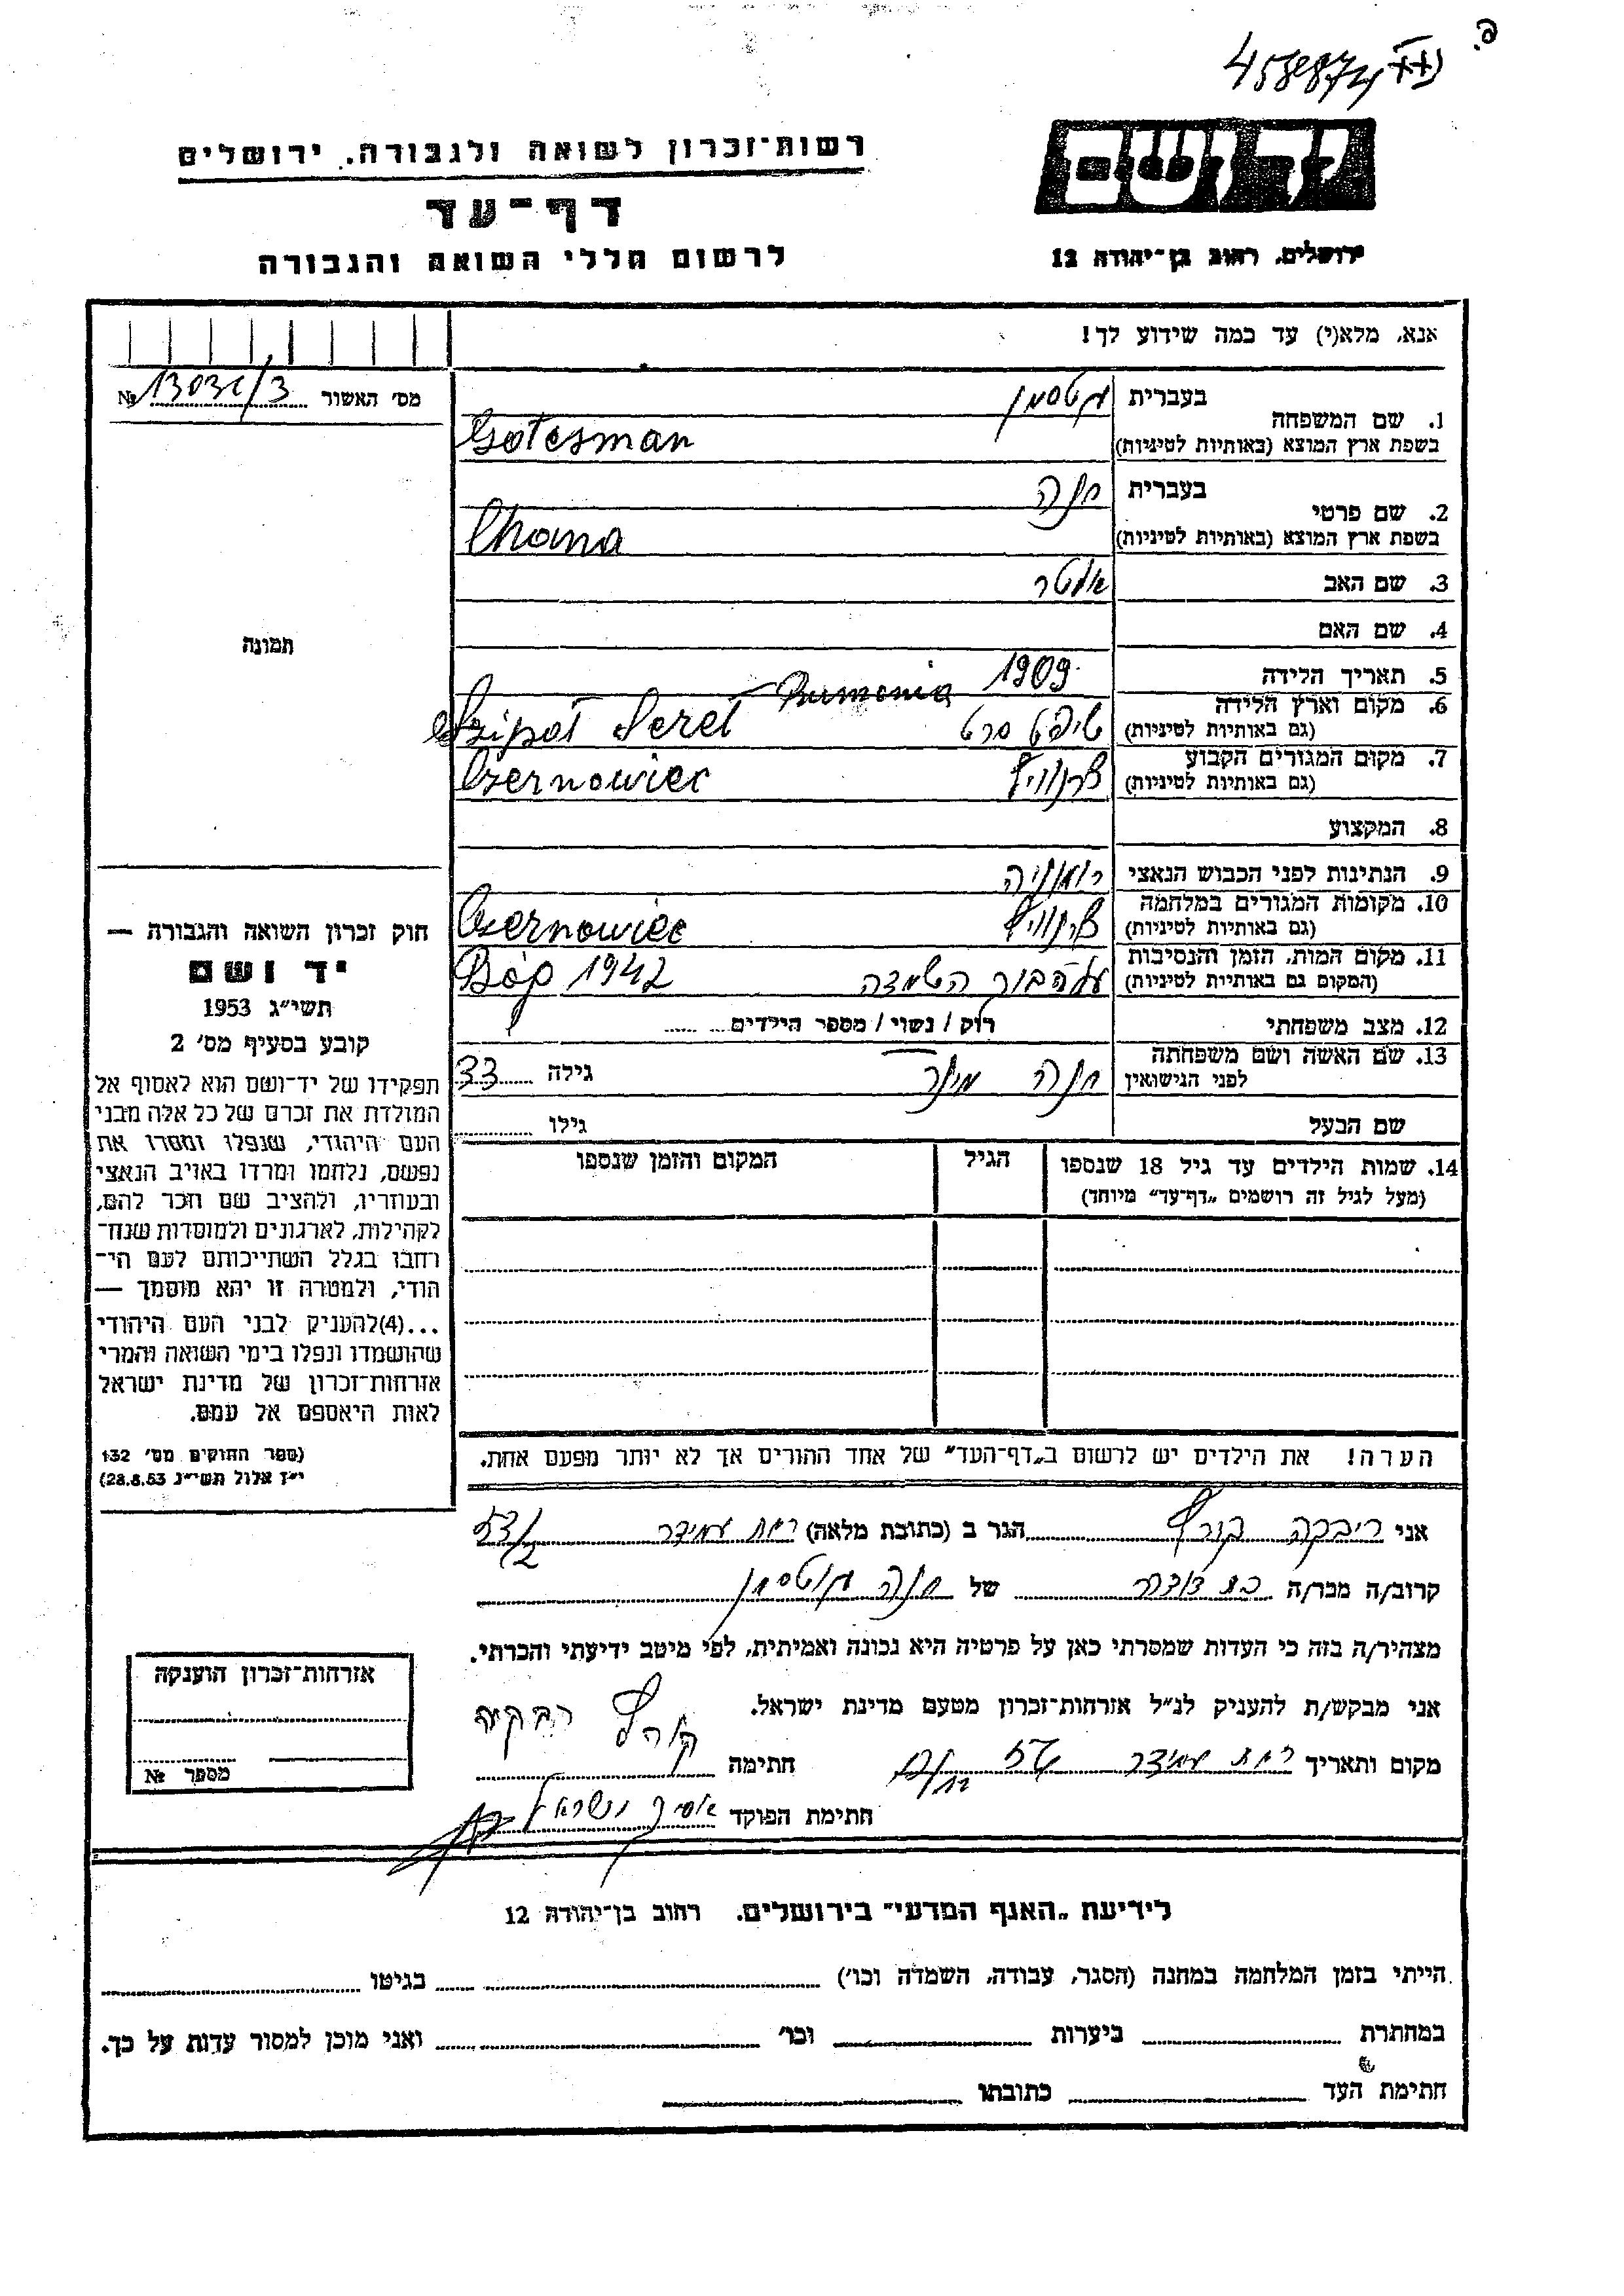 רשות־זכרון לשואה ולגבורה, ירושלים
דף־עד
לרשום חללי השואה והגבורה
יד ושם
ירושלים, רחוב בן־יהודה 12
אנא, מלא(י) עד כמה שידוע לך!
מס׳ האשור № 13031/3
1. שם המשפחה בעברית גוטסמן
בשפת ארץ המוצא (באותיות לטיניות) Gotesman
2. שם פרטי בעברית חנה
בשפת ארץ המוצא (באותיות לטיניות) Chana
3. שם האב אלטר
4. שם האם
תמונה
5. תאריך הלידה 1909
6. מקום וארץ הלידה Rumenia
(גם באותיות לטיניות) שיפט סרט Szipot Seret
7. מקום המגורים הקבוע
(גם באותיות לטיניות) צרנוויץ Czernowiec
8. המקצוע
9. הנתינות לפני הכבוש הנאצי רומניה
10. מקומות המגורים במלחמה
(גם באותיות לטיניות) צרנוויץ Czernowiec
11. מקום המות, הזמן והנסיבות
(המקום גם באותיות לטיניות) השמדה 1942
12. מצב משפחתי רוק / נשוי / מספר הילדים
13. שם האשה ושם משפחתה
לפני הנישואין חנה גילה 33
שם הבעל גילו
14. שמות הילדים עד גיל 18 שנספו הגיל המקום והזמן שנספו
(מעל לגיל זה רושמים „דף־עד” מיוחד)
חוק זכרון השואה והגבורה —
יד ושם
תשי״ג 1953
קובע בסעיף מס׳ 2
תפקידו של יד־ושם הוא לאסוף אל
המולדת את זכרם של כל אלה מבני
העם היהודי, שנפלו ומסרו את
נפשם, נלחמו ומרדו באויב הנאצי
ובעוזריו, ולהציב שם וזכר להם,
לקהילות, לארגונים ולמוסדות שנח־
רחבו בגלל השתייכותם לעם הי־
הודי, ולמטרה זו יהא מוסמך —
...(4)להעניק לבני העם היהודי
שהושמדו ונפלו בימי השואה והמרי
אזרחות־זכרון של מדינת ישראל
לאות היאספם אל עמם.
(ספר החוקים מס׳ 132
י״ז אלול תשי״ג 28.8.53)
הערה! את הילדים יש לרשום ב„דף־העד” של אחד ההורים אך לא יותר מפעם אחת.
אני ריבקה קורץ הגר ב (כתובת מלאה) רמת עמידר
קרוב/ה מכר/ה בת דודה של חנה גוטסמן
מצהיר/ה בזה כי העדות שמסרתי כאן על פרטיה היא נכונה ואמיתית, לפי מיטב ידיעתי והכרתי.
אני מבקש/ת להעניק לנ״ל אזרחות־זכרון מטעם מדינת ישראל.
מקום ותאריך רמת עמידר חתימה קורץ רבקה
חתימת הפוקד
אזרחות־זכרון הוענקה
מספר №
לידיעת „האגף המדעי” בירושלים, רחוב בן־יהודה 12
הייתי בזמן המלחמה במחנה (הסגר, עבודה, השמדה וכו׳) בגיטו
במחתרת ביערות וכו׳ ואני מוכן למסור עדות על כך.
חתימת העד כתובתו